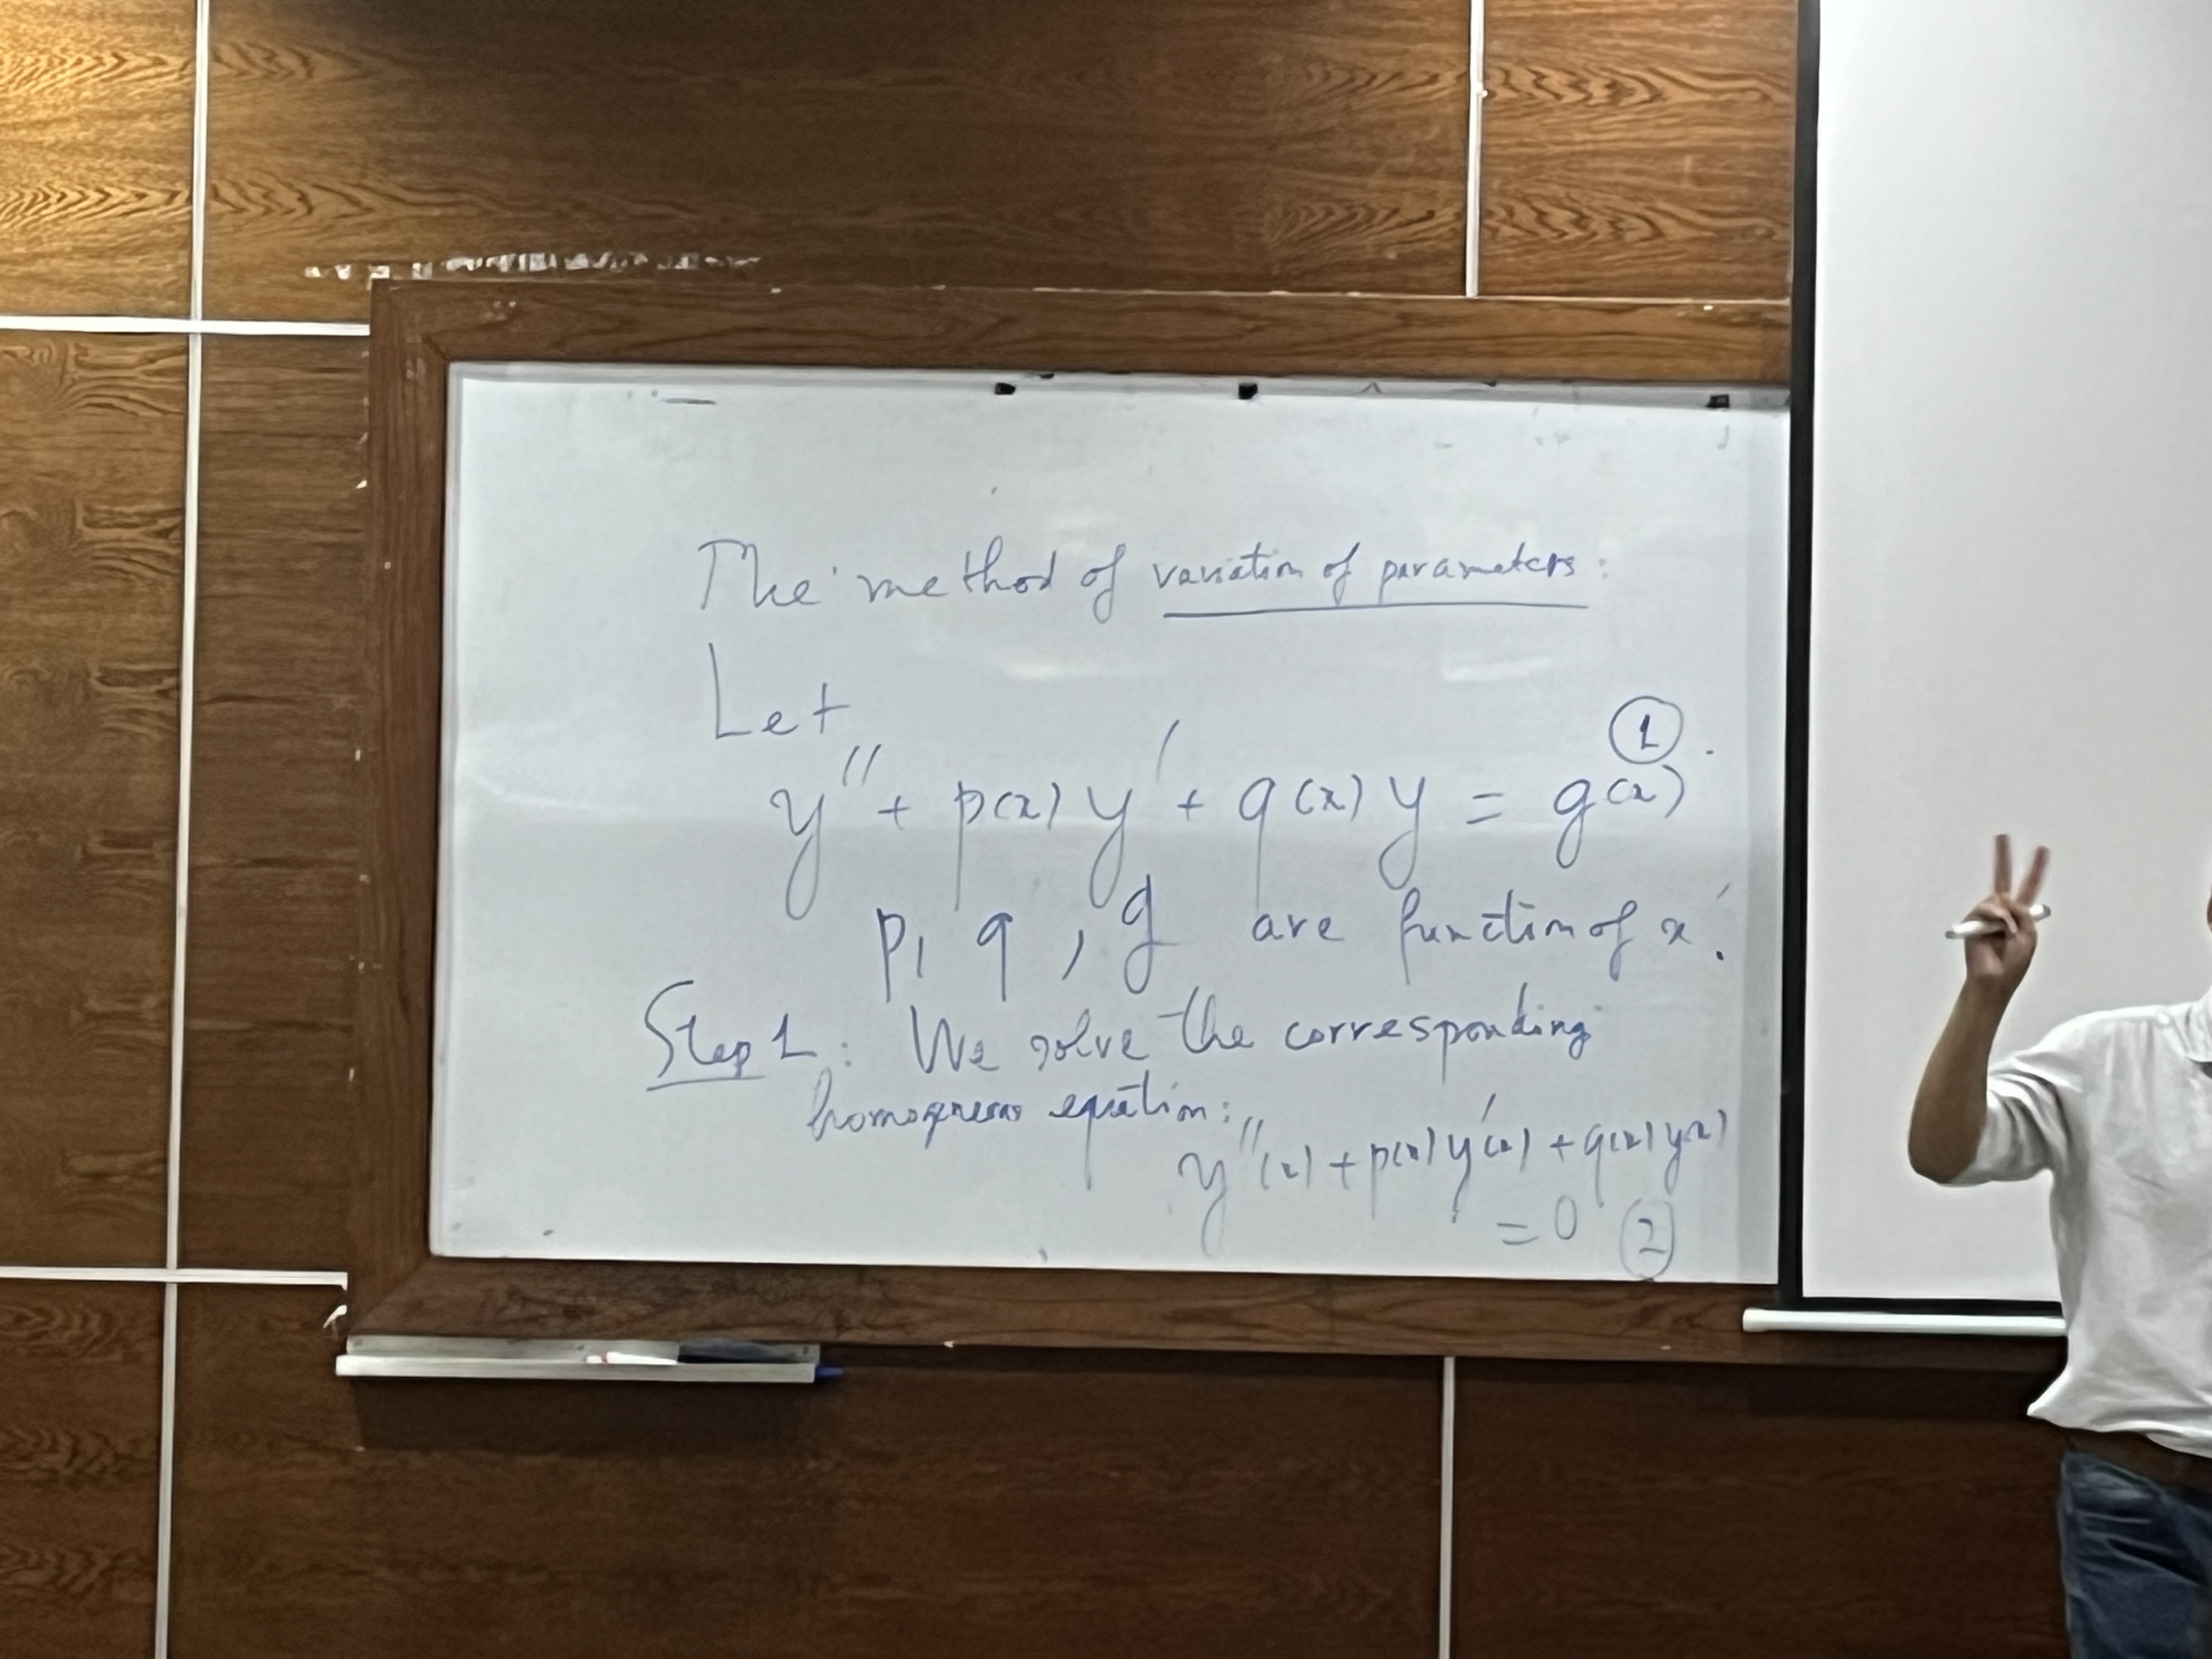 The method of variation of parameters:
Let
y'' + p(x) y' + q(x) y = g(x) ①.
p, q, g are function of x.
Step 1: We solve the corresponding
homogeneous equation:
y''(x) + p(x) y'(x) + q(x) y(x)
= 0 ②